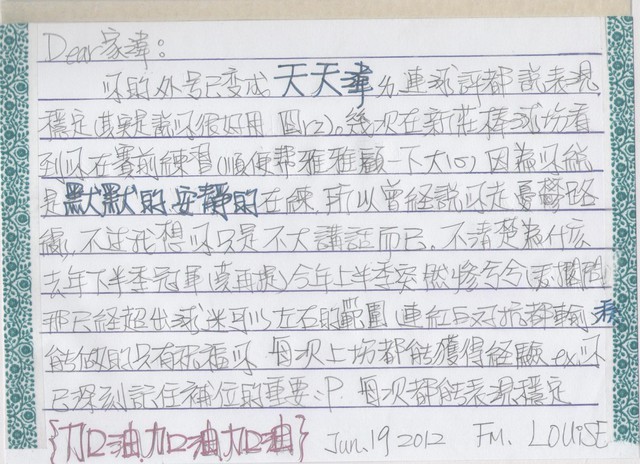 Dear家瑋:
妳的外号已变成天天瑋,連球評都説表現
穩定(其実是説妳很好用 。幾次在新莊棒球场看
到妳在賽前練習(順便帮雅雅顧一下大 )因為妳総
是默默的安靜的在練,所以曾経説妳走憂鬱路
線,不过我想妳只是不太講話而已。不清楚為什
去年下半季冠軍( 再提)今年上半季突然惨兮兮
那已経超出球迷可以左右的範圍(連紅白对抗都輸
能做的只有祝福妳 每次上场都能獲得経驗 ex.妳
已深刻記住補位的重要:P 每次都能表現穩定
{加油.加油加油} Jun.19 2012 FM. LOUiSE